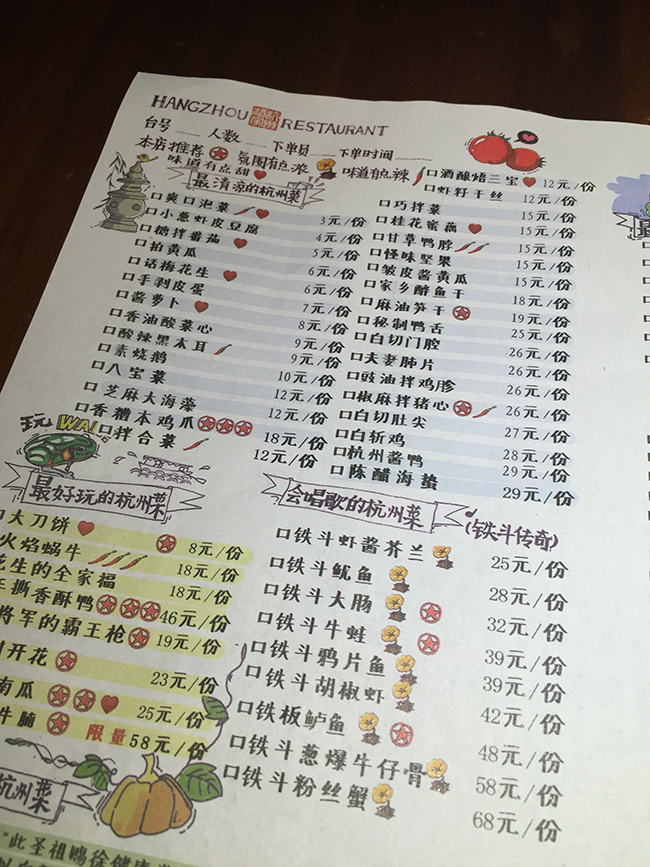 HANGZHOU RESTAURANT
台号 人数 下单员 下单时间
本店推荐 氛围有点浓 味道有点辣
味道有点甜
最清凉的杭州菜
口爽口泡菜 3元/份
口小葱虾皮豆腐 4元/份
口糖拌番茄 5元/份
口拍黄瓜 6元/份
口话梅花生 6元/份
口手剥皮蛋 7元/份
口酱萝卜 8元/份
口香油酸菜心 9元/份
口酸辣黑木耳 9元/份
口素烧鹅 10元/份
口八宝菜 12元/份
口芝麻大海藻 12元/份
口香糟本鸡爪 18元/份
口拌合菜 12元/份
口酒酿焐三宝 12元/份
口虾籽干丝 12元/份
口巧拌菜 15元/份
口桂花蜜藕 15元/份
口甘草鸭脖 15元/份
口怪味坚果 15元/份
口皱皮酱黄瓜 15元/份
口家乡醉鱼干 18元/份
口麻油笋干 19元/份
口秘制鸭舌 25元/份
口白切门腔 26元/份
口夫妻肺片 26元/份
口豉油拌鸡胗 26元/份
口椒麻拌猪心 26元/份
口白切肚尖 27元/份
口白斩鸡 28元/份
口杭州酱鸭 29元/份
口陈醋海蜇 29元/份
玩 WAN
最好玩的杭州菜
口大刀饼 8元/份
火焰蜗牛 18元/份
花生的全家福 18元/份
手撕香酥鸭 46元/份
将军的霸王枪 19元/份
开花 23元/份
南瓜 25元/份
牛腩 限量58元/份
杭州菜
会唱歌的杭州菜 (铁斗传奇)
口铁斗虾酱芥兰 25元/份
口铁斗鱿鱼 28元/份
口铁斗大肠 32元/份
口铁斗牛蛙 39元/份
口铁斗鸦片鱼 39元/份
口铁斗胡椒虾 42元/份
口铁板鲈鱼 48元/份
口铁斗葱爆牛仔骨 58元/份
口铁斗粉丝蟹 68元/份